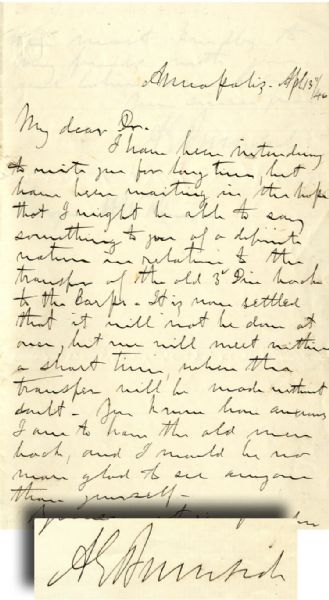 Annapolis. Apl 13/64
My dear Dr.
I have been intending
to write you for long time, but
have been waiting in the hope
that I might be able to say
something to you of a definite
nature in relation to the
transfer of the old 3d Div back
to the Corps - It is now settled
that it will not be done at
once, but we will meet within
a short time, when the
transfer will be made without
doubt - You know how anxious
I am to have the old men
back, and I would be no
more glad to see anyone
than yourself -
A E Burnside